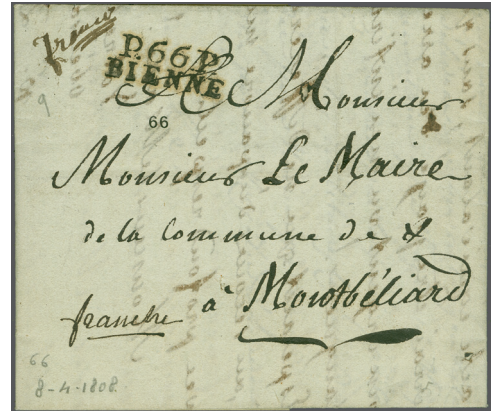 franco
P.66.P.
BIENNE
9
A Monsieur
66
Monsieur Le Maire
de la Commune de &
franche à Montbéliard
66
8-4-1808.